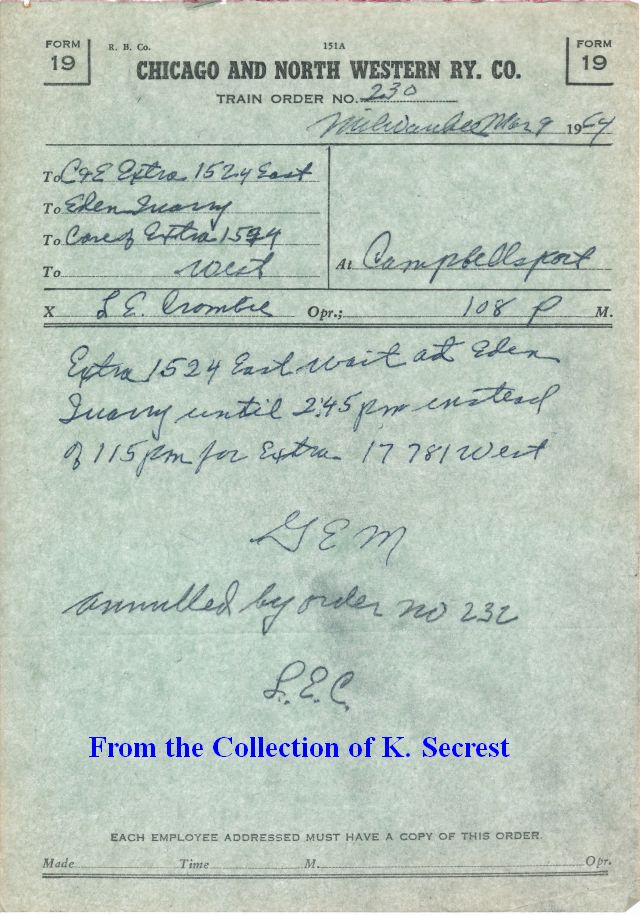 FORM 19
R. B. Co.
151A
FORM 19
CHICAGO AND NORTH WESTERN RY. CO.
TRAIN ORDER NO. 230
Milwaukee Mar 9 1964
To C&E Extra 1524 East
To Eden Quarry
To Care of Extra 1594
To West
At Campbellsport
X L. E. Crombie Opr.; 108 P M.
Extra 1524 East wait at Eden
Quarry until 2:45 pm instead
of 115 pm for Extra 17 781 West
G E M
annulled by order no 232
L.E.C.
From the Collection of K. Secrest
EACH EMPLOYEE ADDRESSED MUST HAVE A COPY OF THIS ORDER.
Made Time M. Opr.